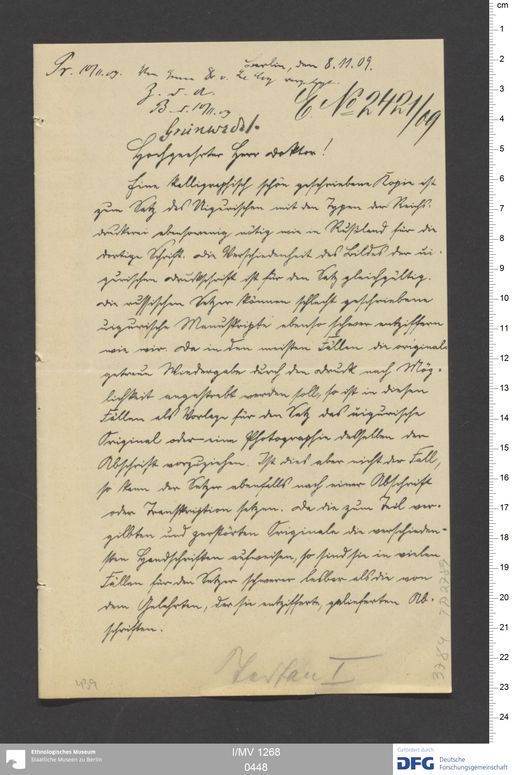 Berlin, den 8.11.09.
Pr. 10/11.09. Von Herrn Dr v. Le Coq
Z. d. A.
B. d. 10/11.09
E No 2421/09
Grünwedel.
Hochgeehrter Herr Doktor!
Eine kalligraphisch schön geschriebene Kopie ist
zum Satz des Uigurischen mit den Typen der Reichs-
druckerei ebensowenig nötig wie in Rußland für die
dortige Schrift. Die Verschiedenheit des Bildes der ui-
gurischen Druckschrift ist für den Satz gleichgültig.
Die russischen Setzer können schlecht geschriebene
uigurische Manuskripte ebenso schwer entziffern
wie wir. Da in den meisten Fällen die original-
getreue Wiedergabe durch den Druck nach Mög-
lichkeit angestrebt werden soll, so ist in diesen
Fällen als Vorlage für den Satz das uigurische
Original oder eine Photographie desselben der
Abschrift vorzuziehen. Ist dies aber nicht der Fall,
so kann der Setzer ebenfalls nach einer Abschrift
oder Transkription setzen. Da die zum Teil ver-
gilbten und zerstörten Originale die verschieden-
sten Handschriften aufweisen, so sind sie in vielen
Fällen für den Setzer schwerer lesbar als die von
dem Gelehrten, der sie entzifferte, gelieferten Ab-
schriften.
Turfan I
439
I/MV 1268
0448
Ethnologisches Museum
Staatliche Museen zu Berlin
Gefördert durch
DFG Deutsche
Forschungsgemeinschaft
cm
1
2
3
4
5
6
7
8
9
10
11
12
13
14
15
16
17
18
19
20
21
22
23
24